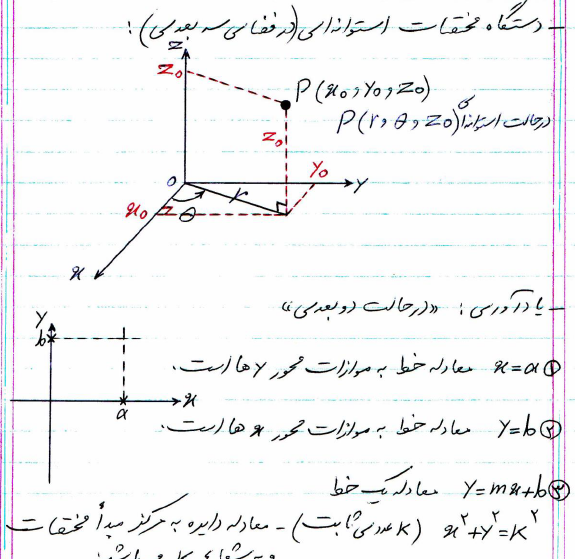 - دستگاه مختصات استوانه‌ای (در فضای سه بعدی):
z
z₀
P(x₀, y₀, z₀)
در حالت استوانه‌ای P(r, θ, z₀)
z₀
o
y₀
y
r
x₀
θ
x
- یادآوری: «در حالت دو بعدی»
y
b
① x=a معادله خط به موازات محور y ها است.
x
a
② y=b معادله خط به موازات محور x ها است.
③ y=mx+b معادله یک خط
x²+y²=k² (k عددی ثابت) - معادله دایره به مرکز مبدأ مختصات